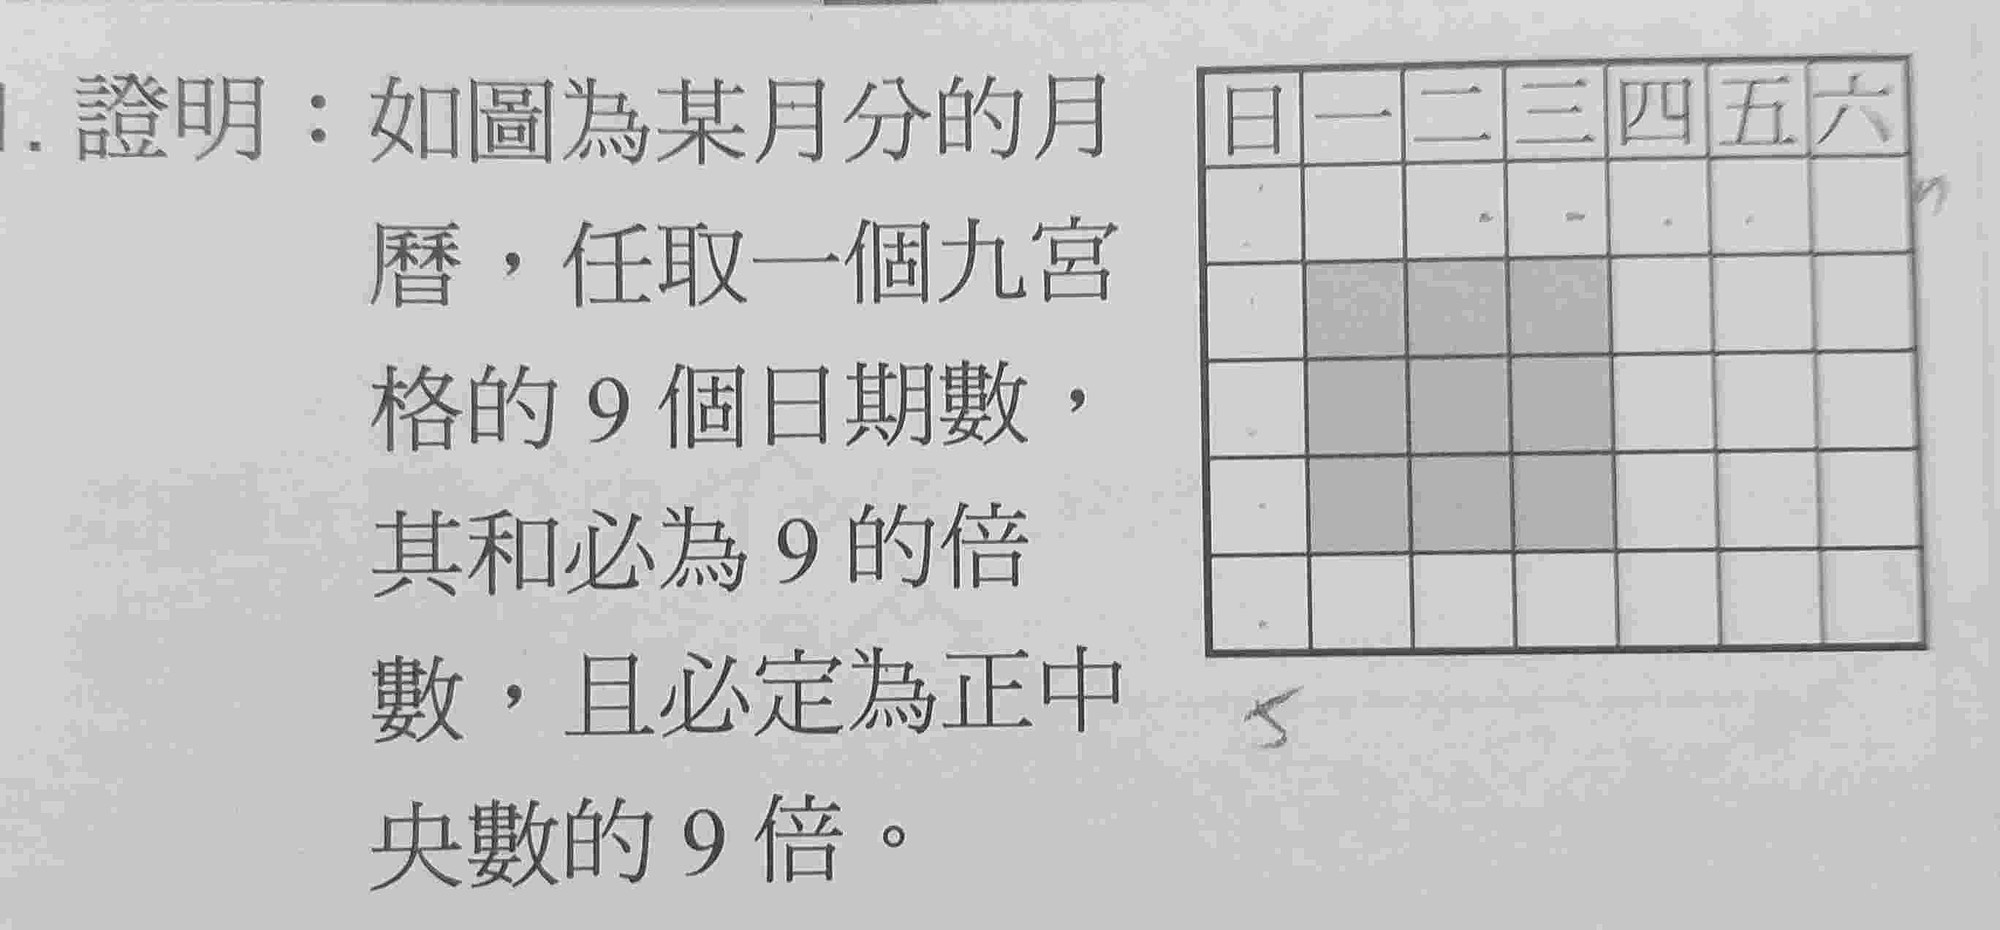 1. 證明：如圖為某月分的月
曆，任取一個九宮
格的 9 個日期數，
其和必為 9 的倍
數，且必定為正中
央數的 9 倍。
日 一 二 三 四 五 六
5